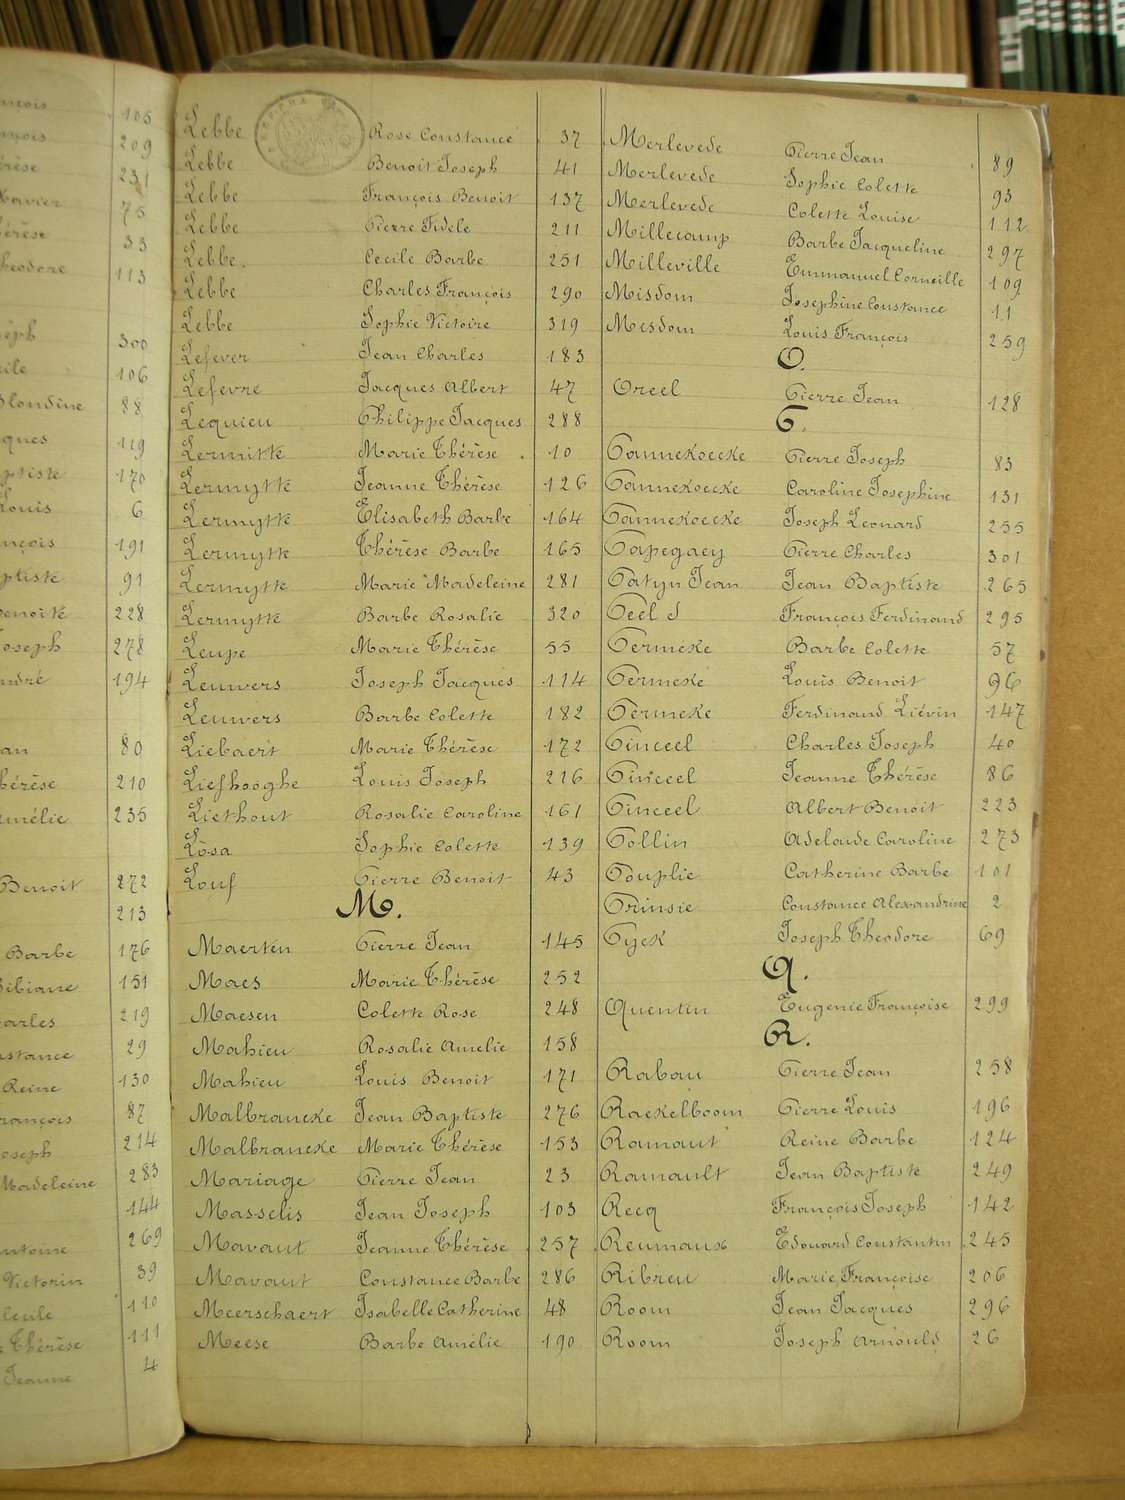 105
209
231
75
33
113
300
106
88
119
170
6
191
91
228
278
194
80
210
235
Benoit 272
213
Barbe 176
151
219
29
Reine 130
87
214
Madeleine 283
144
269
Victorin 39
110
Thérèse 111
Jeanne 4
Lebbe Rose Constance 37
Lebbe Benoit Joseph 41
Lebbe François Benoit 137
Lebbe Pierre Fidele 211
Lebbe Cecile Barbe 251
Lebbe Charles François 290
Lebbe Sophie Victoire 319
Lefever Jean Charles 183
Lefevre Jacques Albert 47
Lequieu Philippe Jacques 288
Lermitte Marie Thérèse 10
Lermytte Jeanne Thérèse 126
Lermytte Elisabeth Barbe 164
Lermytte Thérèse Barbe 165
Lermytte Marie Madeleine 281
Lermytte Barbe Rosalie 320
Leupe Marie Thérèse 55
Leuwers Joseph Jacques 114
Leuwers Barbe Colette 182
Liebaert Marie Thérèse 172
Liefhooghe Louis Joseph 216
Liethout Rosalie Caroline 161
Losa Sophie Colette 139
Louf Pierre Benoit 43
M.
Maerten Pierre Jean 145
Maes Marie Thérèse 252
Maesen Colette Rose 248
Mahieu Rosalie Amelie 158
Mahieu Louis Benoit 171
Malbrancke Jean Baptiste 276
Malbrancke Marie Thérèse 153
Mariage Pierre Jean 23
Masselis Jean Joseph 103
Mavaut Jeanne Thérèse 257
Mavaut Constance Barbe 286
Meerschaert Isabelle Catherine 48
Meese Barbe Amélie 190
Merlevede Pierre Jean 89
Merlevede Sophie Colette 93
Merlevede Colette Louise 112
Millecamp Barbe Jacqueline 297
Milleville Emmanuel Corneille 109
Misdom Josephine Constance 11
Misdom Louis François 259
O.
Oreel Pierre Jean 128
P.
Pannekoecke Pierre Joseph 83
Pannekoecke Caroline Josephine 131
Pannekoecke Joseph Leonard 255
Papegaey Pierre Charles 301
Patyn Jean Jean Baptiste 265
Peel J François Ferdinand 295
Permeke Barbe Colette 57
Permeke Louis Benoit 96
Permeke Ferdinand Liévin 147
Pinceel Charles Joseph 40
Pinceel Jeanne Thérèse 86
Pinceel Albert Benoit 223
Pollin Adelaide Caroline 273
Pouplie Catherine Barbe 101
Prinsie Constance Alexandrine 2
Pyck Joseph Theodore 69
Q.
Quentin Eugenie Françoise 299
R.
Rabau Pierre Jean 258
Raekelboom Pierre Louis 196
Ramaut Reine Barbe 124
Ramault Jean Baptiste 249
Recq François Joseph 142
Reumaux Edouard Constantin 245
Ribreu Marie Françoise 206
Room Jean Jacques 296
Room Joseph Arnould 26